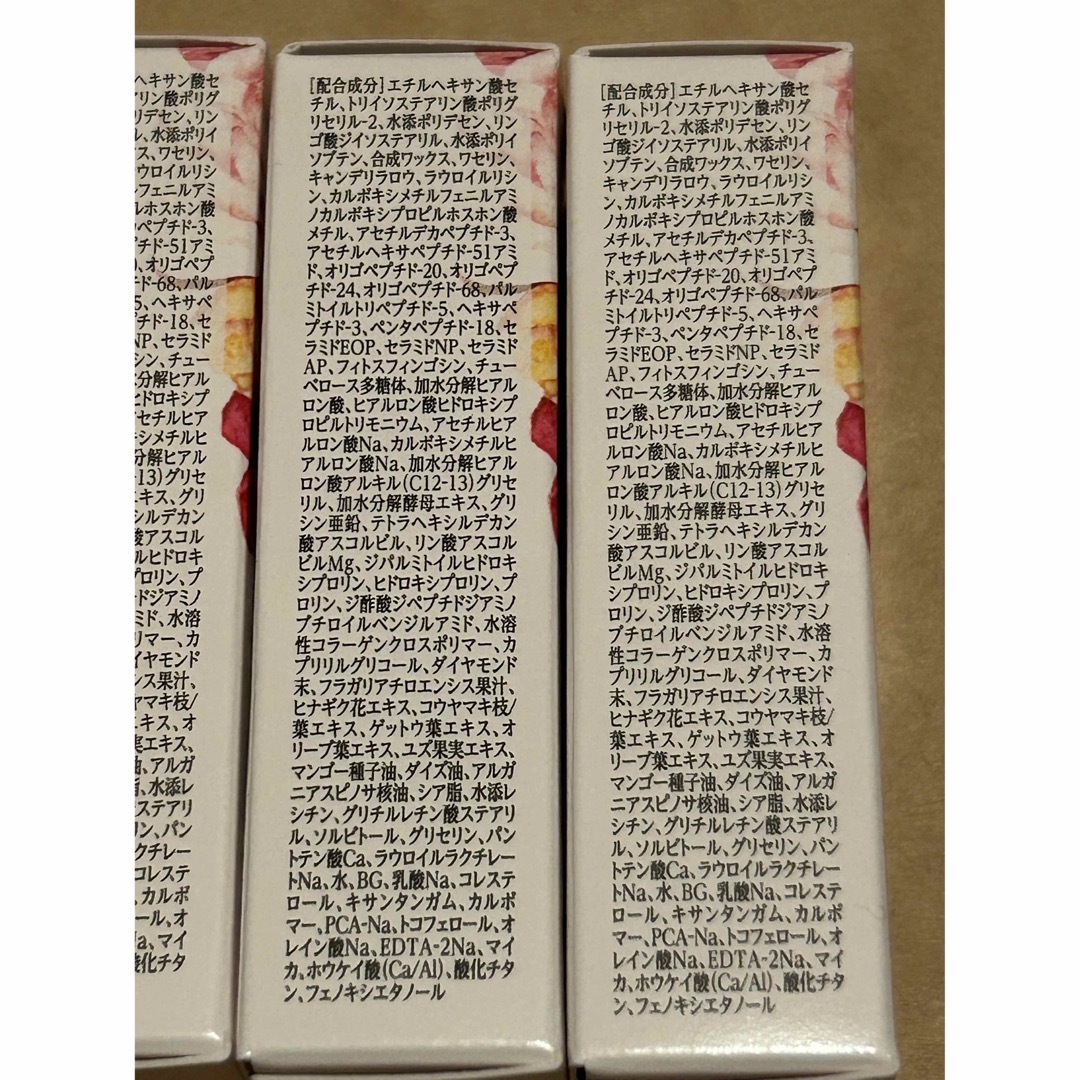 ヘキサン酸セ
アリン酸ポリグ
リデセン、リン
ル、水添ポリイ
ス、ワセリン、
ラウロイルリシ
ルフェニルアミ
ルホスホン酸
ペプチド-3、
プチド-51アミ
、オリゴペプ
チド-68、パル
5、ヘキサペ
チド-18、セ
NP、セラミド
シン、チュー
水分解ヒアル
ヒドロキシプ
アセチルヒア
キシメチルヒ
分解ヒアル
-13)グリセ
エキス、グリ
シルデカン
酸アスコル
ルヒドロキ
プロリン、プ
ドジアミノ
ミド、水溶
リマー、カ
イヤモンド
ンシス果汁、
ヤマキ枝/
エキス、オ
実エキス、
油、アルガ
脂、水添レ
ステアリ
リン、パン
クチレー
コレステ
、カルボ
ール、オ
Na、マイ
酸化チタ
[配合成分]エチルヘキサン酸セ
チル、トリイソステアリン酸ポリグ
リセリル-2、水添ポリデセン、リン
ゴ酸ジイソステアリル、水添ポリイ
ソブテン、合成ワックス、ワセリン、
キャンデリラロウ、ラウロイルリシ
ン、カルボキシメチルフェニルアミ
ノカルボキシプロピルホスホン酸
メチル、アセチルデカペプチド-3、
アセチルヘキサペプチド-51アミ
ド、オリゴペプチド-20、オリゴペプ
チド-24、オリゴペプチド-68、パル
ミトイルトリペプチド-5、ヘキサペ
プチド-3、ペンタペプチド-18、セ
ラミドEOP、セラミドNP、セラミド
AP、フィトスフィンゴシン、チュー
ベロース多糖体、加水分解ヒアル
ロン酸、ヒアルロン酸ヒドロキシプ
ロピルトリモニウム、アセチルヒア
ルロン酸Na、カルボキシメチルヒ
アルロン酸Na、加水分解ヒアル
ロン酸アルキル(C12-13)グリセ
リル、加水分解酵母エキス、グリ
シン亜鉛、テトラヘキシルデカン
酸アスコルビル、リン酸アスコル
ビルMg、ジパルミトイルヒドロキ
シプロリン、ヒドロキシプロリン、プ
ロリン、ジ酢酸ジペプチドジアミノ
ブチロイルベンジルアミド、水溶
性コラーゲンクロスポリマー、カ
プリリルグリコール、ダイヤモンド
末、フラガリアチロエンシス果汁、
ヒナギク花エキス、コウヤマキ枝/
葉エキス、ゲットウ葉エキス、オ
リーブ葉エキス、ユズ果実エキス、
マンゴー種子油、ダイズ油、アルガ
ニアスピノサ核油、シア脂、水添レ
シチン、グリチルレチン酸ステアリ
ル、ソルビトール、グリセリン、パン
トテン酸Ca、ラウロイルラクチレー
トNa、水、BG、乳酸Na、コレステ
ロール、キサンタンガム、カルボ
マー、PCA-Na、トコフェロール、オ
レイン酸Na、EDTA-2Na、マイ
カ、ホウケイ酸(Ca/Al)、酸化チタ
ン、フェノキシエタノール
[配合成分]エチルヘキサン酸セ
チル、トリイソステアリン酸ポリグ
リセリル-2、水添ポリデセン、リン
ゴ酸ジイソステアリル、水添ポリイ
ソブテン、合成ワックス、ワセリン、
キャンデリラロウ、ラウロイルリシ
ン、カルボキシメチルフェニルアミ
ノカルボキシプロピルホスホン酸
メチル、アセチルデカペプチド-3、
アセチルヘキサペプチド-51アミ
ド、オリゴペプチド-20、オリゴペプ
チド-24、オリゴペプチド-68、パル
ミトイルトリペプチド-5、ヘキサペ
プチド-3、ペンタペプチド-18、セ
ラミドEOP、セラミドNP、セラミド
AP、フィトスフィンゴシン、チュー
ベロース多糖体、加水分解ヒアル
ロン酸、ヒアルロン酸ヒドロキシプ
ロピルトリモニウム、アセチルヒア
ルロン酸Na、カルボキシメチルヒ
アルロン酸Na、加水分解ヒアル
ロン酸アルキル(C12-13)グリセ
リル、加水分解酵母エキス、グリ
シン亜鉛、テトラヘキシルデカン
酸アスコルビル、リン酸アスコル
ビルMg、ジパルミトイルヒドロキ
シプロリン、ヒドロキシプロリン、プ
ロリン、ジ酢酸ジペプチドジアミノ
ブチロイルベンジルアミド、水溶
性コラーゲンクロスポリマー、カ
プリリルグリコール、ダイヤモンド
末、フラガリアチロエンシス果汁、
ヒナギク花エキス、コウヤマキ枝/
葉エキス、ゲットウ葉エキス、オ
リーブ葉エキス、ユズ果実エキス、
マンゴー種子油、ダイズ油、アルガ
ニアスピノサ核油、シア脂、水添レ
シチン、グリチルレチン酸ステアリ
ル、ソルビトール、グリセリン、パン
トテン酸Ca、ラウロイルラクチレー
トNa、水、BG、乳酸Na、コレステ
ロール、キサンタンガム、カルボ
マー、PCA-Na、トコフェロール、オ
レイン酸Na、EDTA-2Na、マイ
カ、ホウケイ酸(Ca/Al)、酸化チタ
ン、フェノキシエタノール